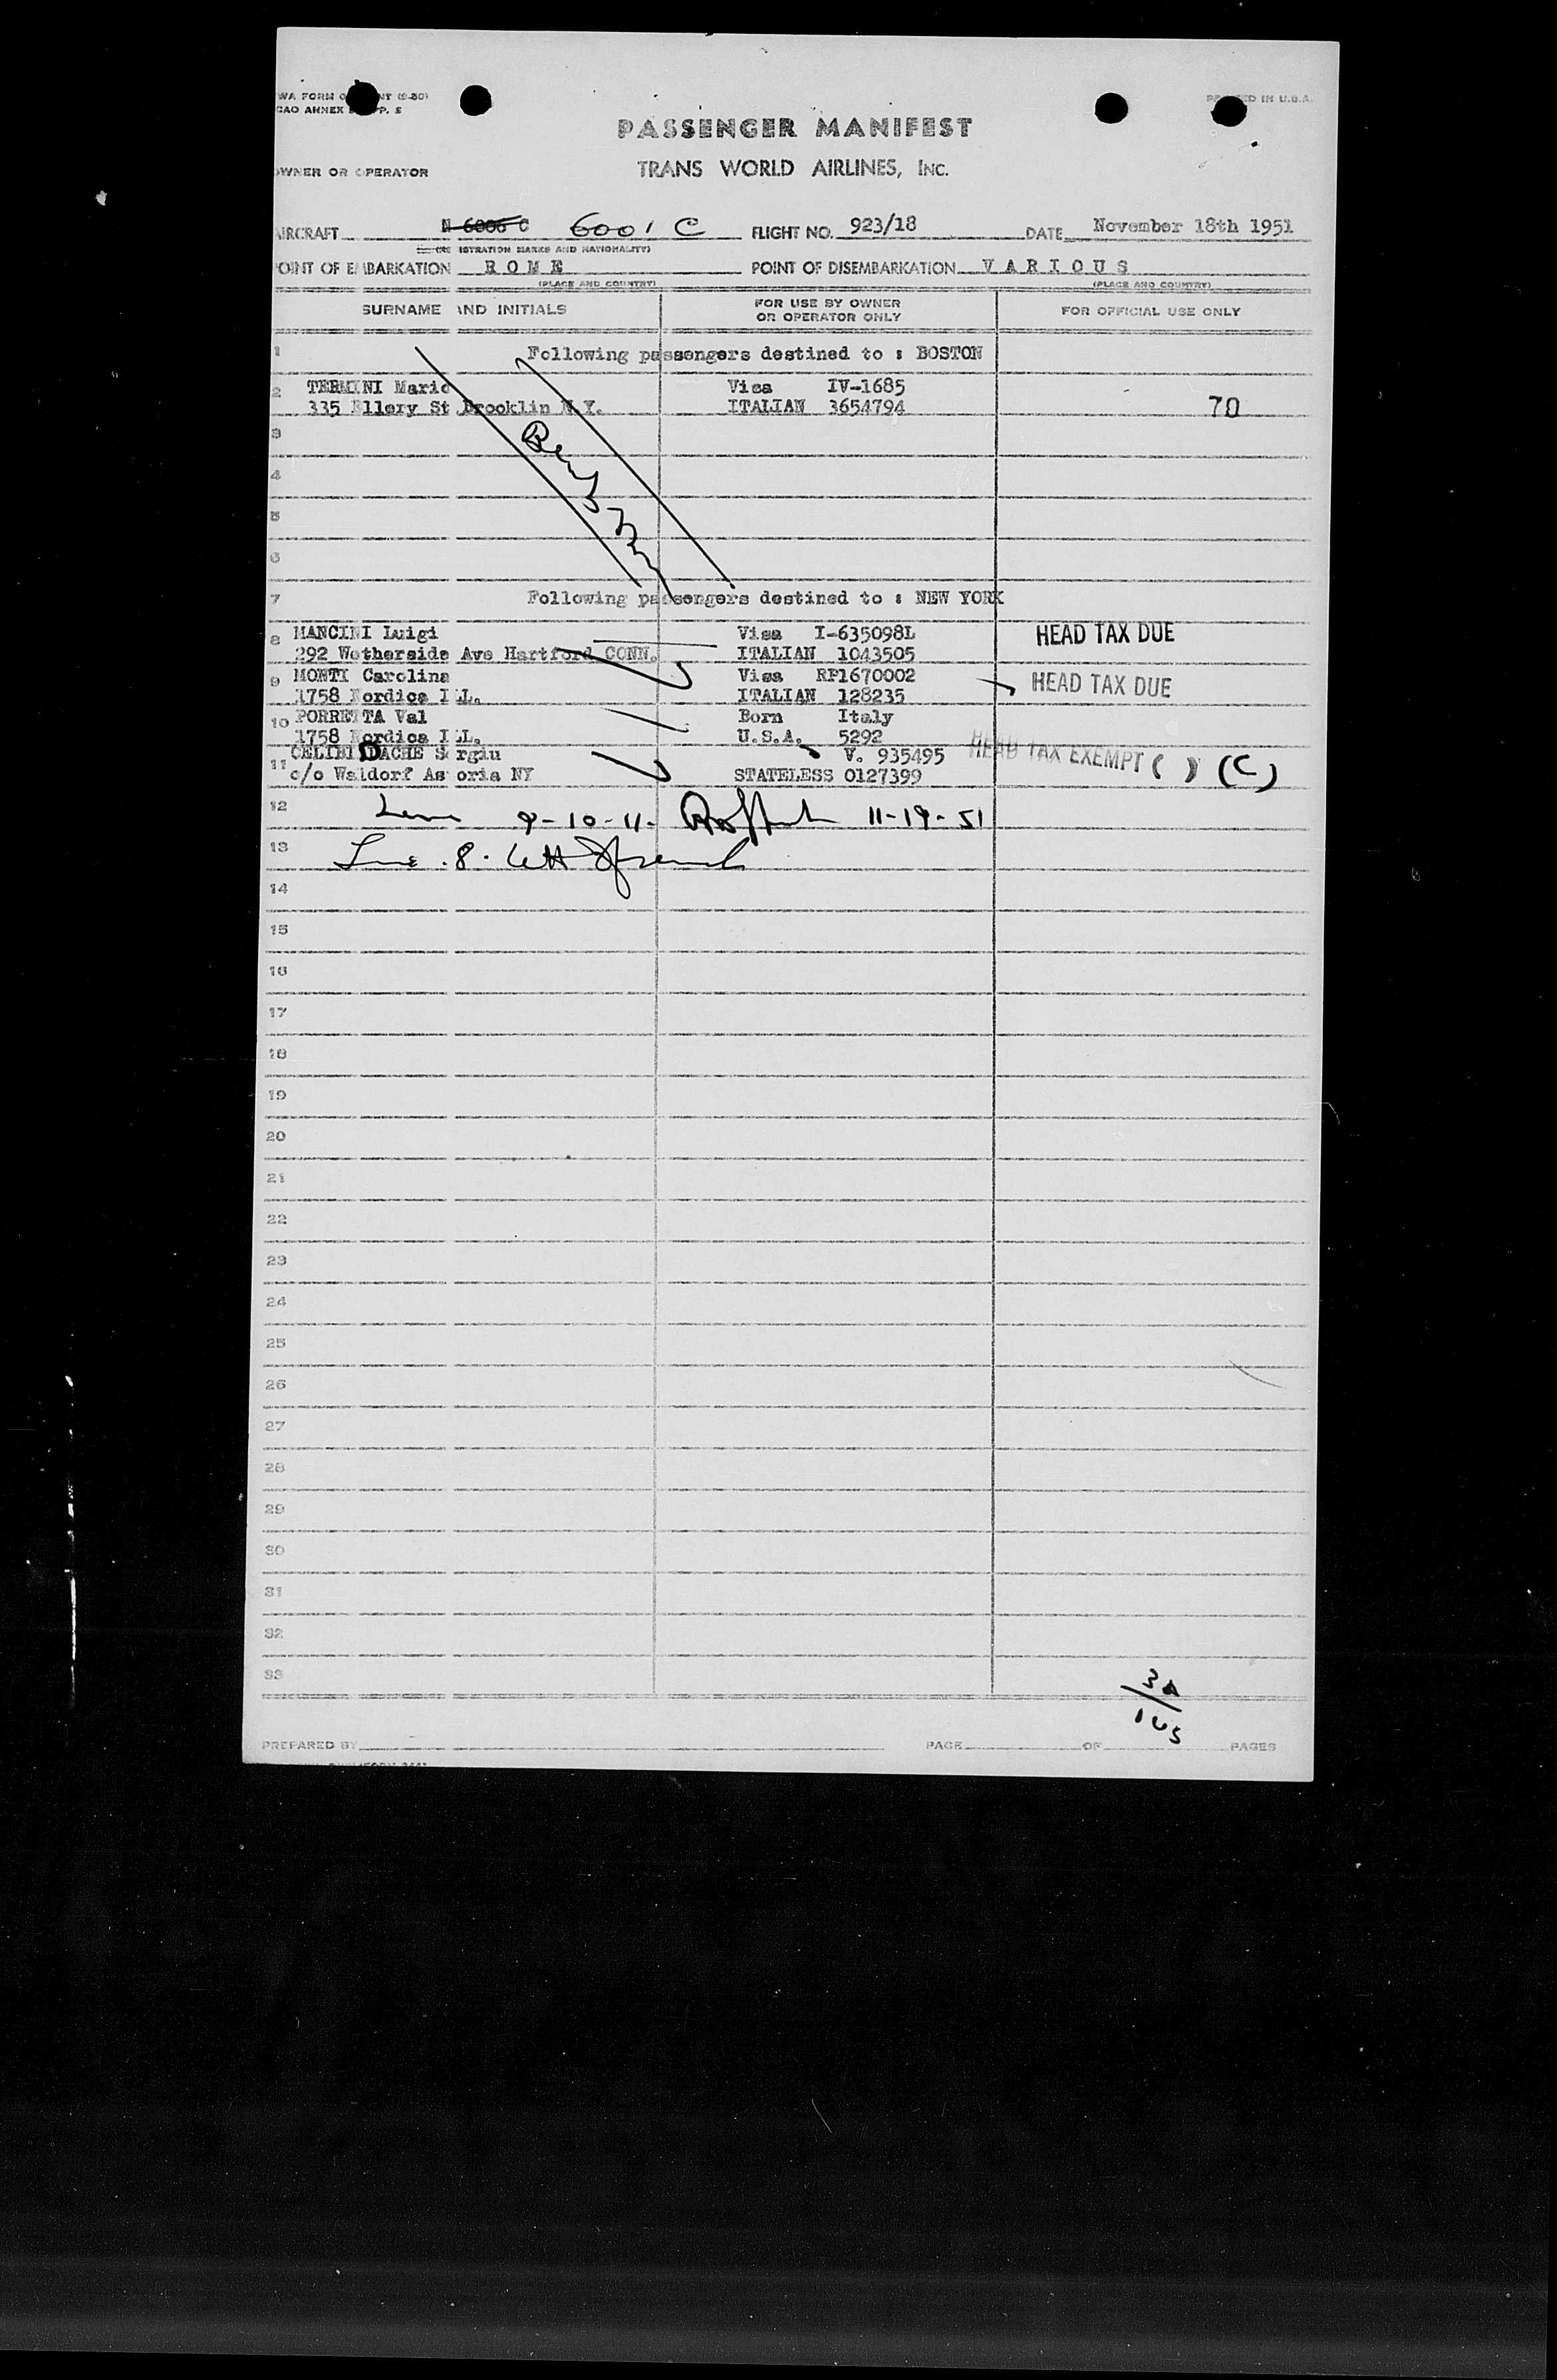 WA FORM
CAO ANNEX
PASSENGER MANIFEST
TRANS WORLD AIRLINES, INC.
OWNER OR OPERATOR
AIRCRAFT N 6006 C 6001 C FLIGHT NO. 923/18 DATE November 18th 1951
ISTRATION MARKS AND NATIONALITY)
POINT OF EMBARKATION ROME POINT OF DISEMBARKATION VARIOUS
(PLACE AND COUNTRY) (PLACE AND COUNTRY)
SURNAME AND INITIALS FOR USE BY OWNER OR OPERATOR ONLY FOR OFFICIAL USE ONLY
1 Following passengers destined to : BOSTON
2 TERMINI Mario Visa IV-1685
335 Ellery St Brooklin N.Y. ITALIAN 3654794 70
3
4
5
6
7 Following passengers destined to : NEW YORK
8 MANCINI Luigi Visa I-635098L HEAD TAX DUE
292 Wetherside Ave Hartford CONN. ITALIAN 1043505
9 MONTI Carolina Visa RP1670002 HEAD TAX DUE
1758 Nordica ILL. ITALIAN 128235
10 PORRETTA Val Born Italy
1758 Nordica ILL. U.S.A. 5292
11 CELIBIDACHE Sergiu V. 935495 HEAD TAX EXEMPT ( ) (C)
c/o Waldorf Astoria NY STATELESS 0127399
12 9-10-11- 11-19-51
13 Line 8.
14
15
16
17
18
19
20
21
22
23
24
25
26
27
28
29
30
31
32
33
PREPARED BY PAGE OF PAGES